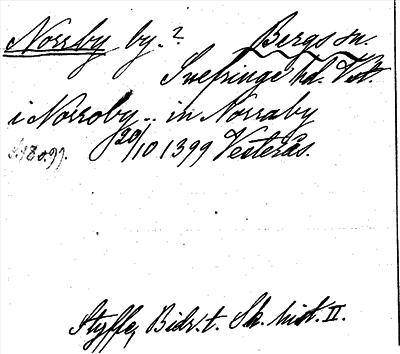 Norrby by.? Bergs sn.
Snefringe hd. Vstm.
i Norroby.. in Norraby
20/10 1399 Vesterås.
s. 180. 99.
Styffe, Bidr. t. Sk. hist. II.